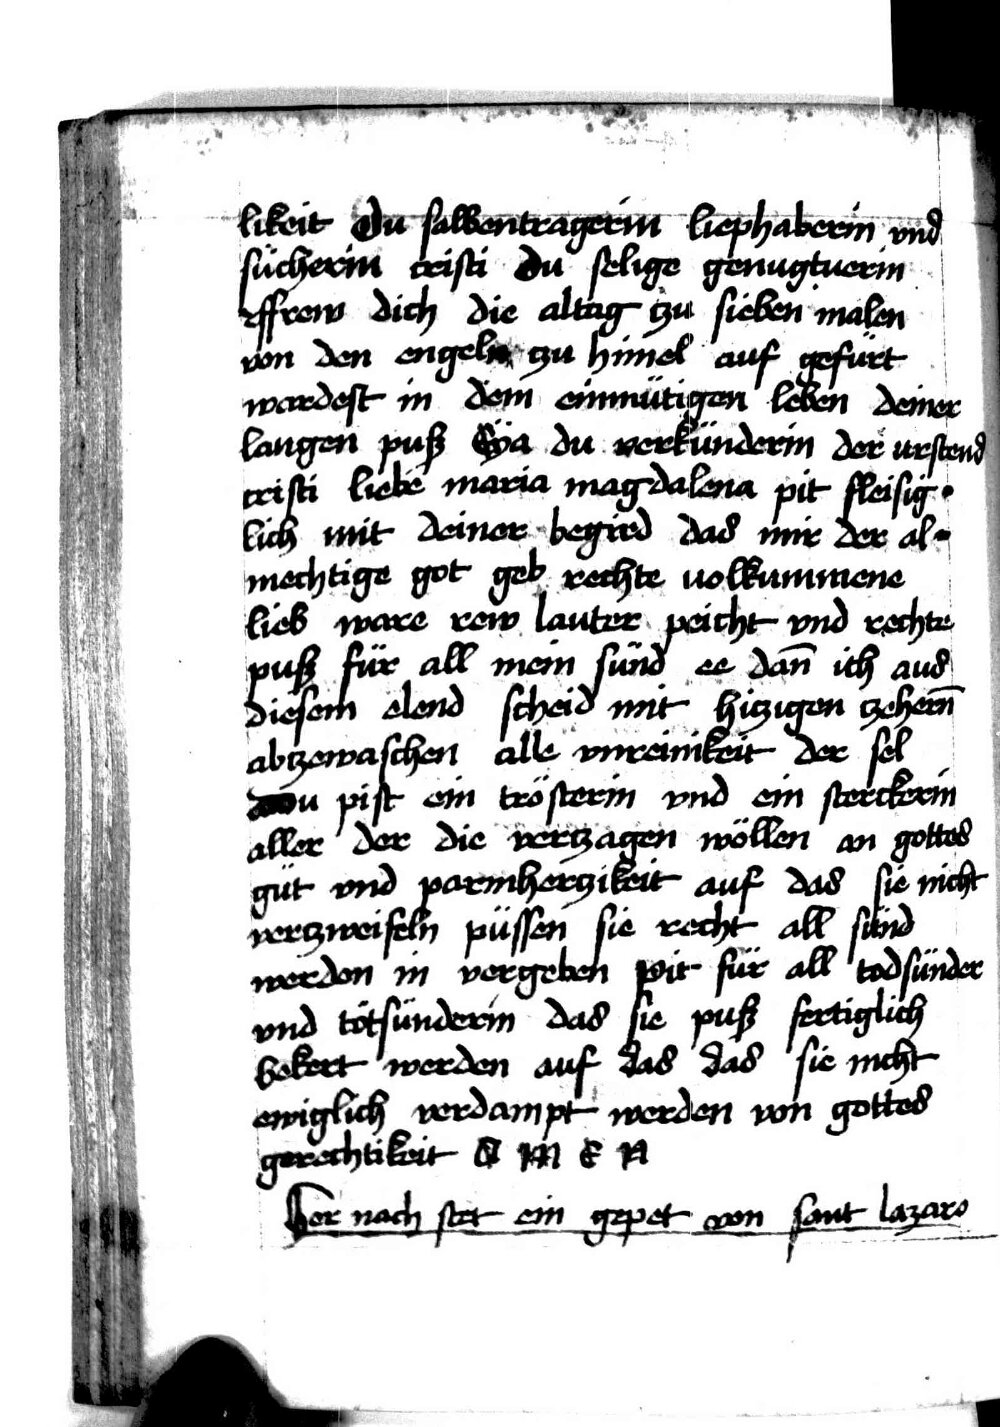 likeit Du salbentragerin liephaberin vnd
sücherin cristi Du selige genugtuerin
effrew dich die altag tzu sieben malen
von den engeln tzu himel auf gefürt
wardest in dem einmütigen leben deiner
langen puß Eya du verkünderin der urstend
cristi liebe maria magdalena pit fleisig•
lich mit deiner begird das mir der al•
mechtige got geb rechte uolkummene
lieb ware rew lauter peicht vnd rechte
puß für all mein sünd ee dañ ich aus
diesem elend scheid mit hitzigen tzeherñ
abtzewaschen alle vnreinikeit der sel
Du pist ein trösterin vnd ein sterckerin
aller der die vertzagen wöllen an gottes
güt vnd parmhertzikeit auf das sie nicht
vertzweifeln püssen sie recht all sünd
werden in vergeben pit für all todsünder
vnd totsünderin das sie puß fertiglich
bekert werden auf das das sie nicht
ewiglich verdampt werden von gottes
gerechtikeit A M E N
Her nach stet ein gepet von sant lazaro